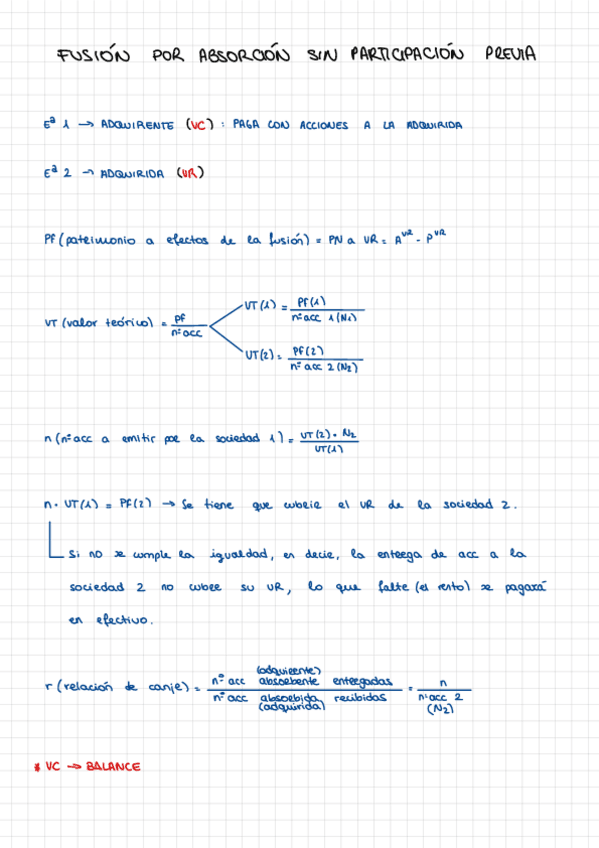 FUSIÓN POR ABSORCIÓN SIN PARTICIPACIÓN PREVIA
Eª 1 → ADQUIRENTE (VC) : PAGA CON ACCIONES A LA ADQUIRIDA
Eª 2 → ADQUIRIDA (VR)
Pf (patrimonio a efectos de la fusión) = PN a VR = A^VR - P^VR
VT (valor teórico) = Pf / nº acc
VT (1) = Pf (1) / nº acc 1 (N1)
VT (2) = Pf (2) / nº acc 2 (N2)
n (nº acc a emitir por la sociedad 1) = VT (2) · N2 / VT (1)
n · VT (1) = Pf (2) → Se tiene que cubrir el VR de la sociedad 2.
Si no se cumple la igualdad, es decir, la entrega de acc a la
sociedad 2 no cubre su VR, lo que falte (el resto) se pagará
en efectivo.
r (relación de canje) = nº acc absorbente (adquirente) entregadas / nº acc absorbida (adquirida) recibidas = n / nº acc 2 (N2)
* VC → BALANCE